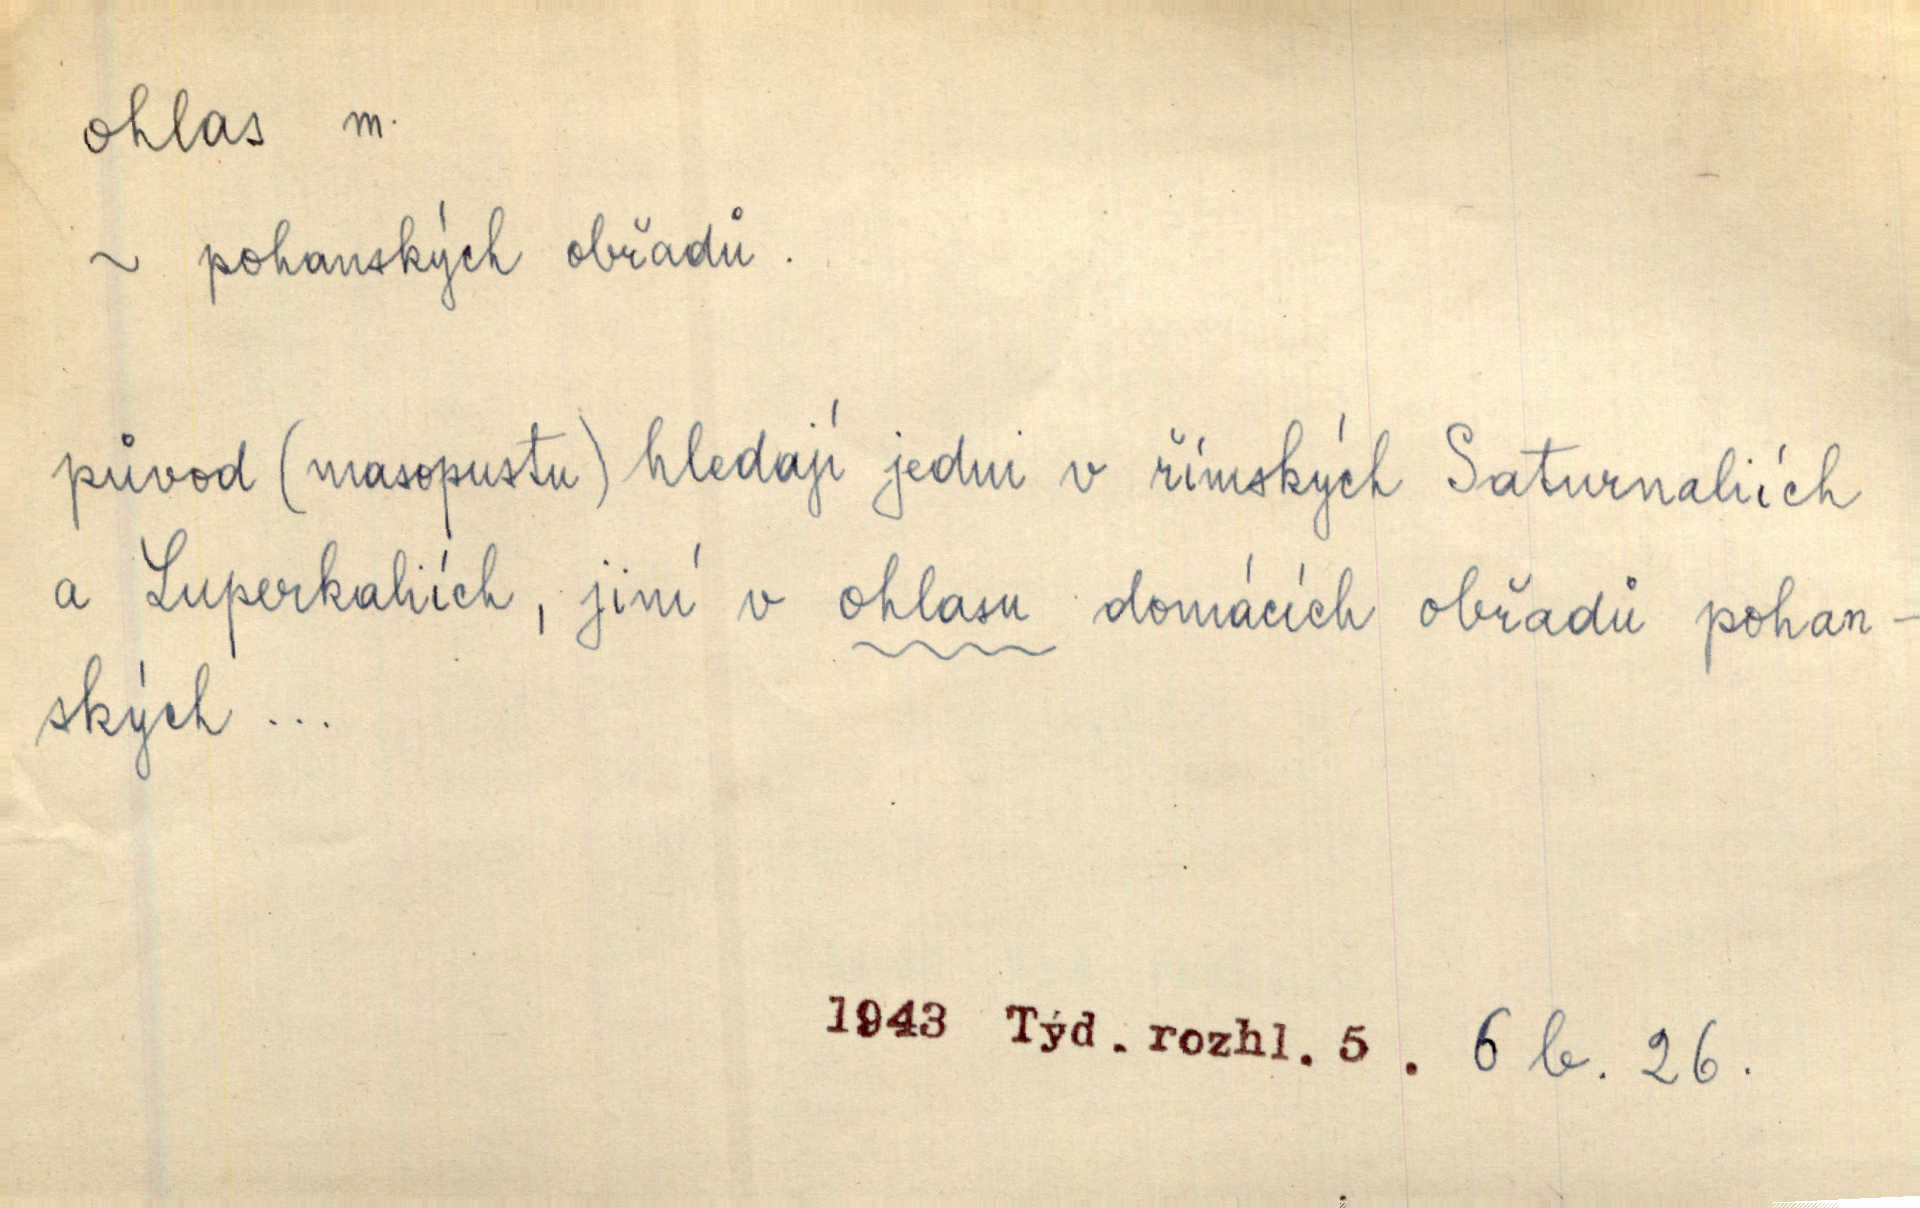 ohlas m.
~ pohanských obřadů.
původ (masopustu) hledají jedni v římských Saturnaliích
a Luperkaliích, jiní v ohlasu domácích obřadů pohan-
ských ...
1943 Týd. rozhl. 5. 6 b. 26.